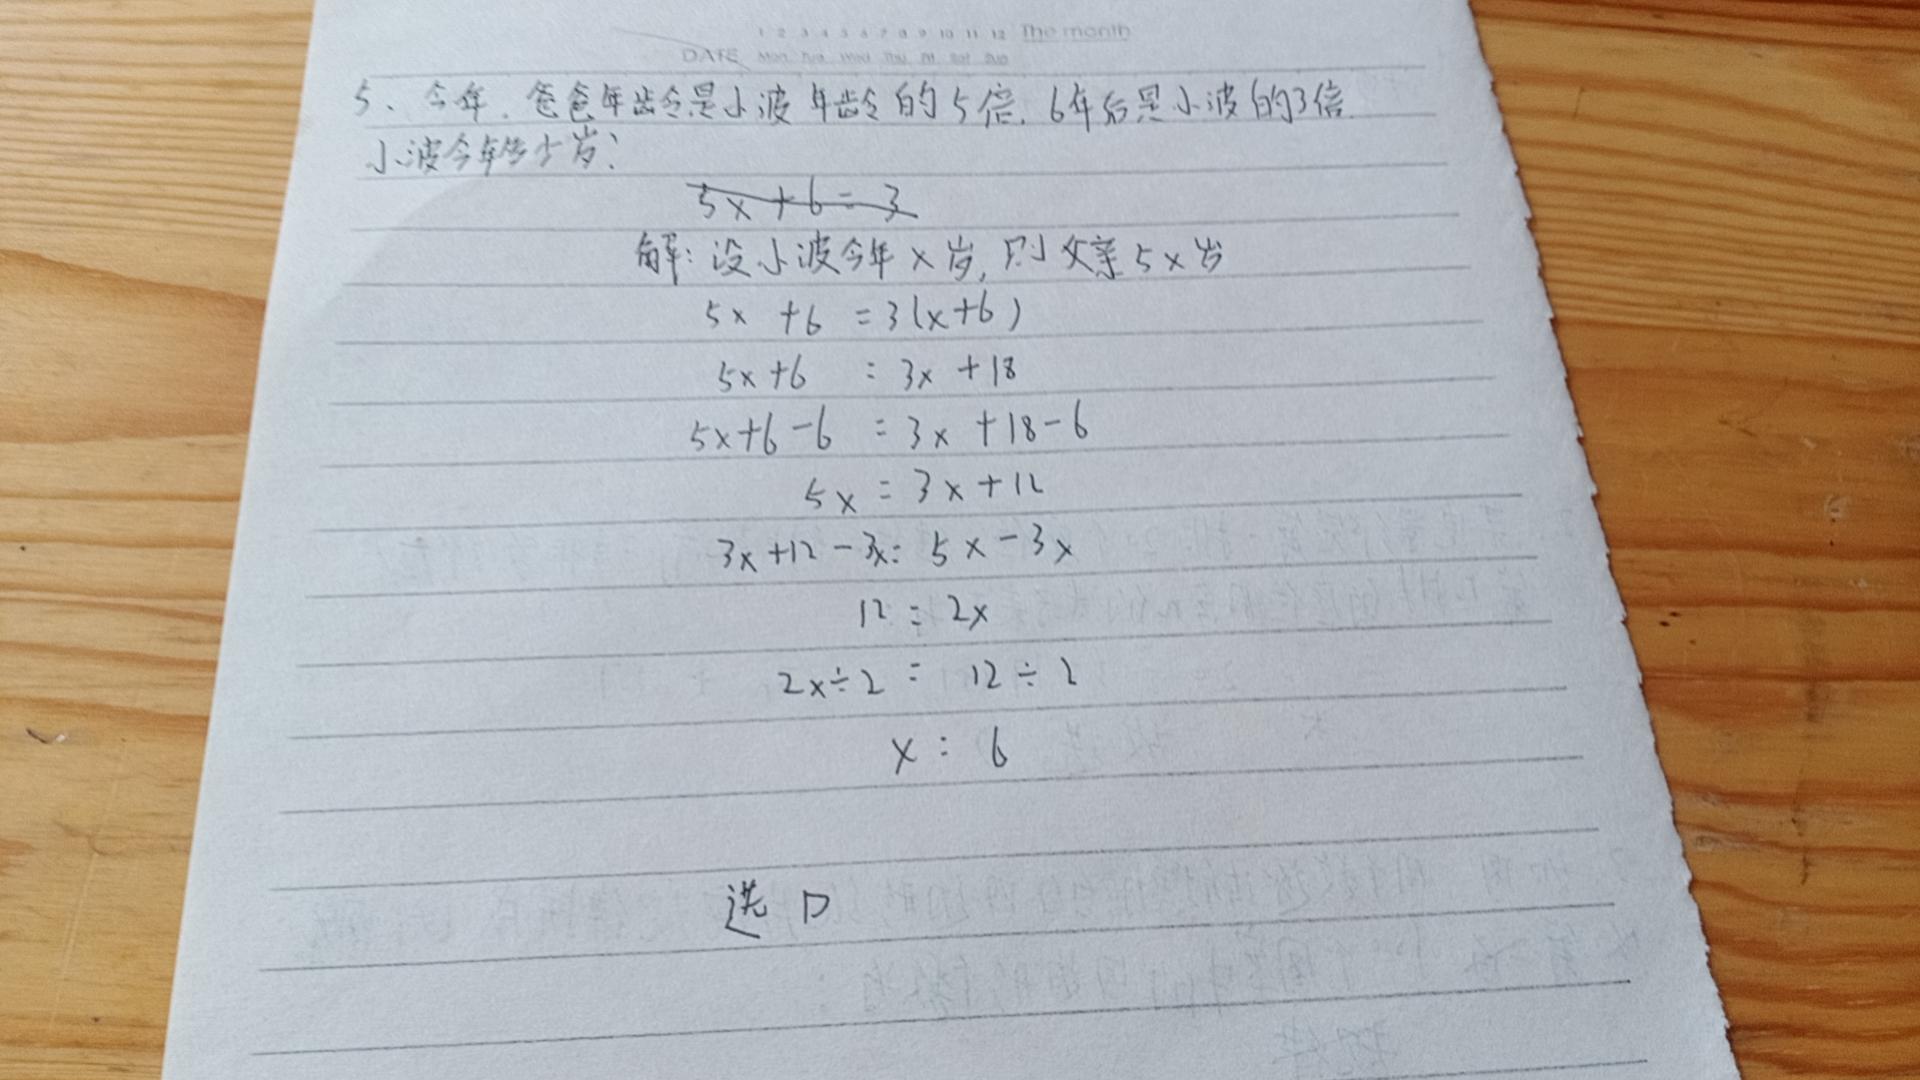 1 2 3 4 5 6 7 8 9 10 11 12 The month
DATE Mon Tue Wed Thu Fri Sat Sun
5、今年,爸爸年龄是小波年龄的5倍,6年后是小波的3倍.
小波今年多少岁?
5x+6=3
解:设小波今年x岁,则父亲5x岁
5x+6=3(x+6)
5x+6=3x+18
5x+6-6=3x+18-6
5x=3x+12
3x+12-3x=5x-3x
12=2x
2x÷2=12÷2
x=6
选D